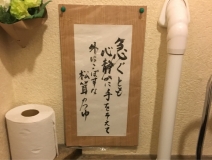 急ぐとも
心静かに手をそえて
外にこぼすな
松茸の露